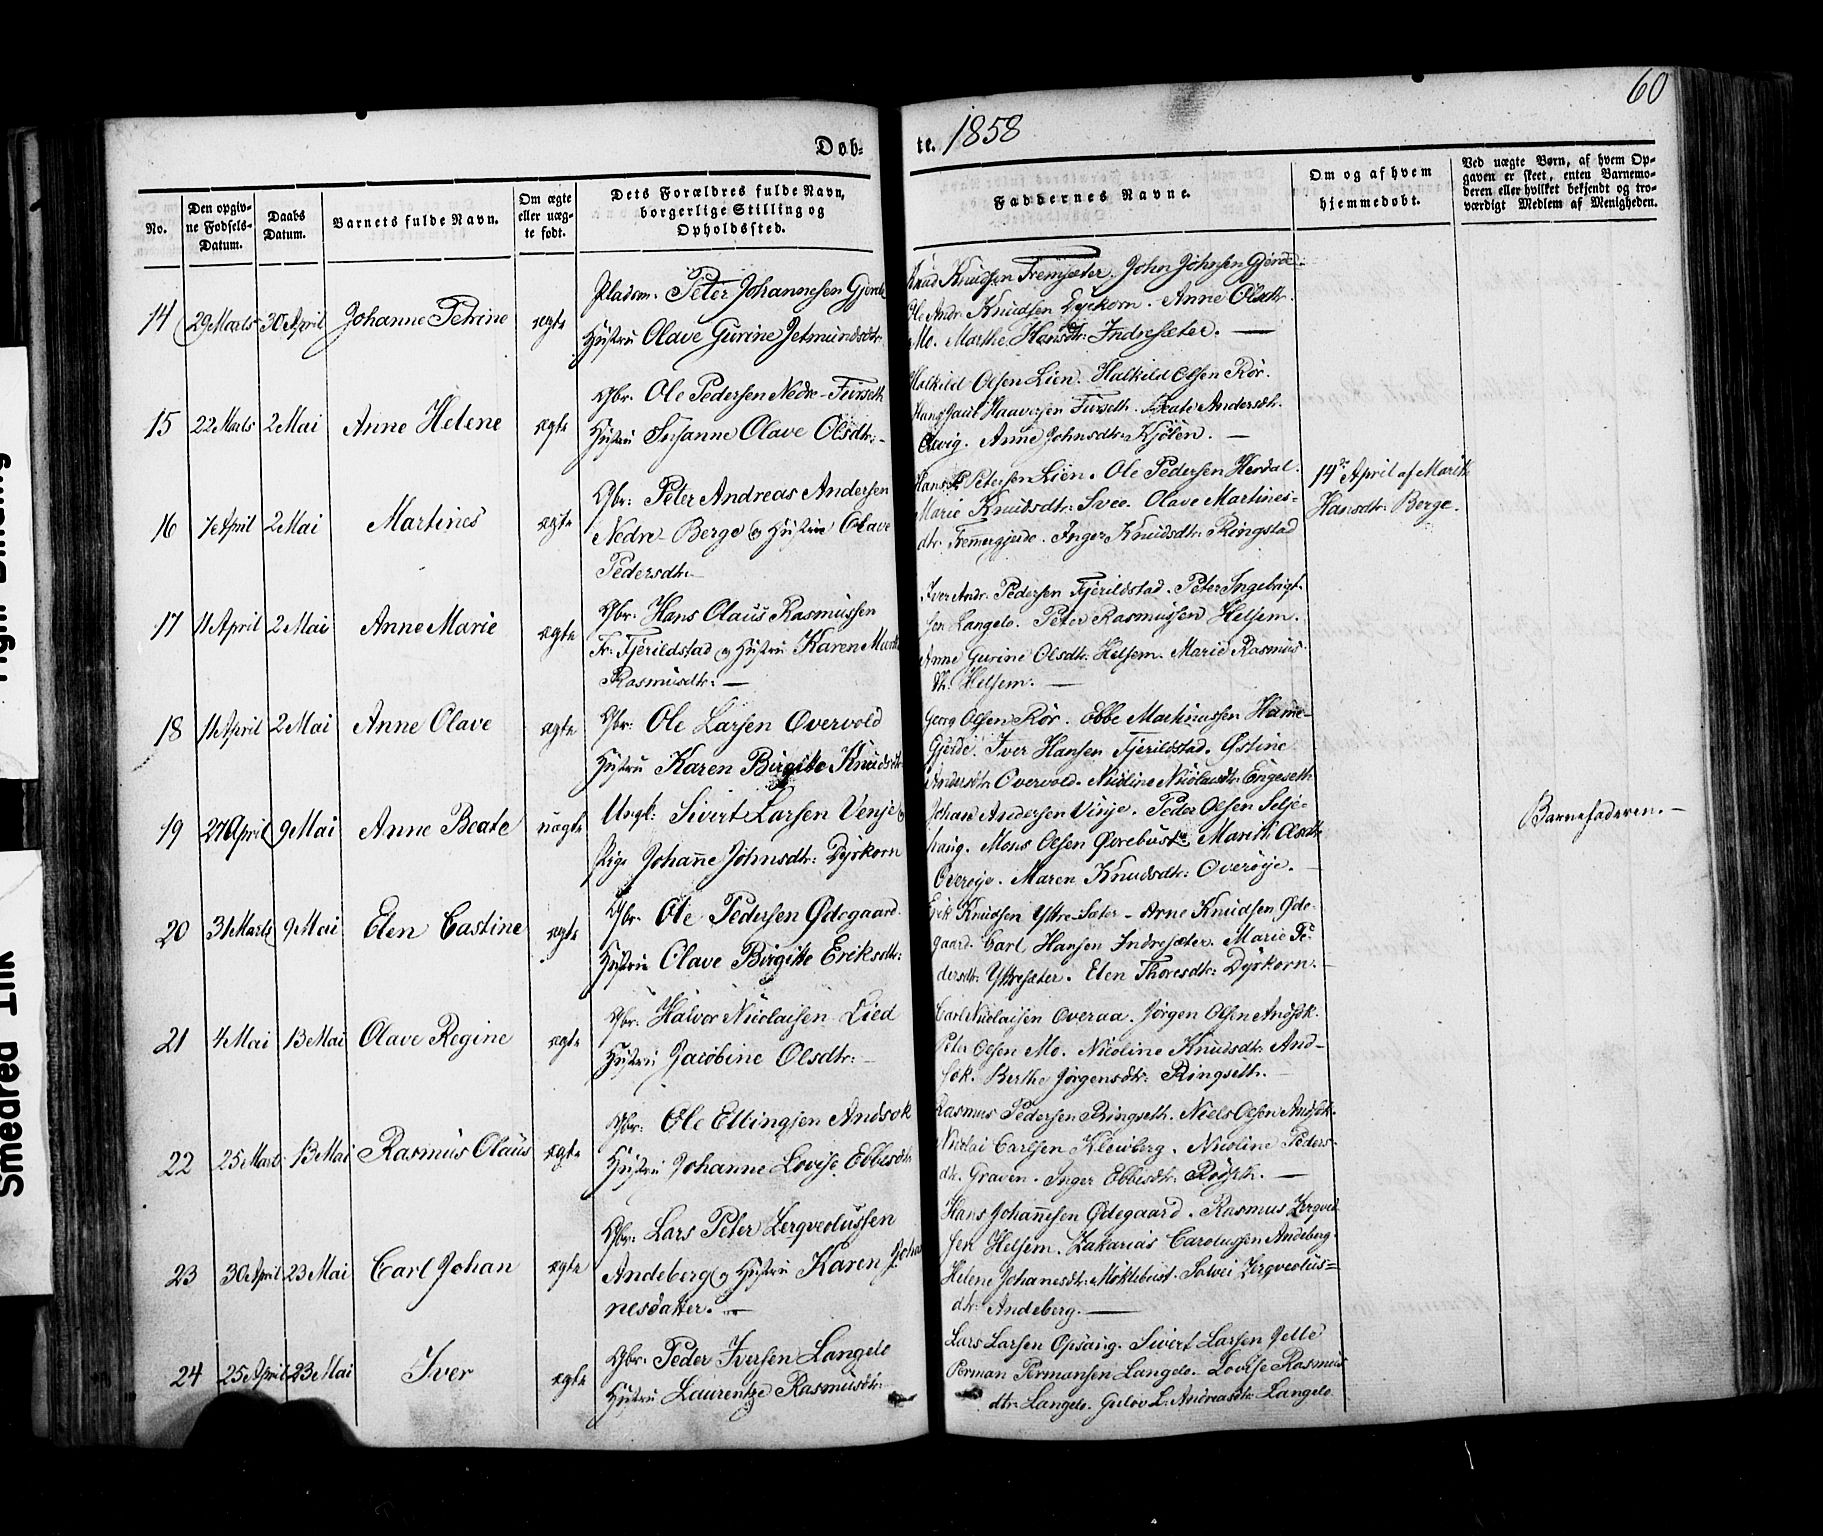 60
Døb-
te. 1858
No.
Den opgiv-
ne Fødsels-
Datum.
Daabs
Datum.
Barnets fulde Navn.
Om ægte
eller uæg-
te født.
Dets Forældres fulde Navn,
borgerlige Stilling og
Opholdssted.
Faddernes Navne.
Om og af hvem
hjemmedøbt.
Ved uægte Børn, af hvem Op-
gaven er skeet, enten Barnemo-
deren eller hvilket bekjendt og tro-
værdigt Medlem af Menigheden.
14 29 Marts 30 April Johanne Petrine ægte
Pladsm. Peter Johannesen Gjerde
Hustru Olave Gurine Jetmundsdtr.
Knud Knudsen Fremsæter. John Johnsen Gjerde.
Ole Andr. Knudsen Dyrkorn. Anne Olsdtr.
Mo. Marthe Hansdtr. Indresæter. —
15 22 Marts 2 Mai Anne Helene ægte
Gbr. Ole Pedersen Nedre-Furseth
Hustru Susanne Olave Olsdtr. -
Halkild Olsen Lien. Halkild Olsen Rør.
Hans Paul Haaversen Furseth. Beate Andersdtr.
Anne Johnsdtr. Kjølen. —
16 7 April 2 Mai Martines ægte
Gbr: Peter Andreas Andersen
Nedre-Berge og Hustru Olave
Pedersdtr. —
Hans P. Petersen Lien. Ole Pedersen Herdal.
Marie Knudsdtr: Svee. Olave Martines-
dtr. Fremmergjerde. Inger Knudsdtr: Ringstad
14de April af Marith
Hansdtr: Berge.
17 11 April 2 Mai Anne Marie ægte
Gbr. Hans Olaus Rasmussen
Fr: Fjerildstad og Hustru Karen Marth
Rasmusdtr: —
Iver Andr. Pedersen Fjerildstad. Peter Ingebrigt-
sen Langelo. Peter Rasmussen Helsem.
Anne Gurine Olsdtr: Helsem. Marie Rasmus-
dtr. Helsem. —
18 11 April 2 Mai Anne Olave ægte
Gbr: Ole Larsen Overvold
Hustru Karen Birgitte Knudsdtr
Georg Olsen Rør. Ebbe Martinussen Hamre-
Gjerde. Iver Hansen Fjerildstad. Østine
Andersdtr: Overvold. Nicoline Nicolausdtr: Engeseth
19 27 April 9 Mai Anne Beate uægte
Ungk: Sivert Larsen Venje og
Pige Johanne Johnsdtr: Dyrkorn
Johan Andersen Vinje. Peder Olsen Selje-
haug. Mons Olsen Øvrebust. Marith Olsdtr:
Overøye. Maren Knudsdtr: Overøye. —
Barnefaderen. —
20 31 Marts 9 Mai Elen Castine ægte
Gbr. Ole Pedersen Ødegaard.
Hustru Olave Birgitte Eriksdtr:
Erik Knudsen Yttre-Sæter - Arne Knudsen Øde-
gaard. Carl Hansen Indresæter. Marie Pe-
dersdtr: Yttresæter. Elen Thoresdtr: Dyrkorn. —
21 4 Mai 13 Mai Olave Regine ægte
Gbr. Halvor Nicolaisen Lied
Hustru Jacobine Olsdtr: —
Carl Nicolaisen Overaa. Jørgen Olsen Andsok.
Peter Olsen Mo. Nicoline Knudsdtr: And-
sok. Berthe Jørgensdtr: Ringseth. —
22 25 Marts 13 Mai Rasmus Olaus ægte
Gbr: Ole Ellingsen Andsok
Hustru Johanne Lovise Ebbesdtr
Rasmus Pedersen Ringseth. Niels Olsen Andsok.
Nicolai Carlsen Kleivberg. Nicoline Peders-
dtr. Graven. Inger Ebbesdtr: —
23 30 April 23 Mai Carl Johan ægte
Gbr: Lars Peter Zerqveolussen
Andeberg og Hustru Karen Johan-
nesdatter. —
Hans Johannesen Ødegaard. Rasmus Zerqveol-
sen Helsem. Zakarias Carolussen Andeberg.
Helene Johanesdtr: Møklebust. Solvei Zerqveolus-
dtr: Andeberg. —
24 25 April 23 Mai Iver ægte
Gbr: Peder Iversen Langelo
Hustru Laurentze Rasmusdtr.
Lars Larsen Opsang. Sivert Larsen Jelle
Perman Permansen Langelo. Lovise Rasmus
dtr: Langelo. Guløv L. Andreasdtr: Langelo
Tight Binding
Smedred Ink